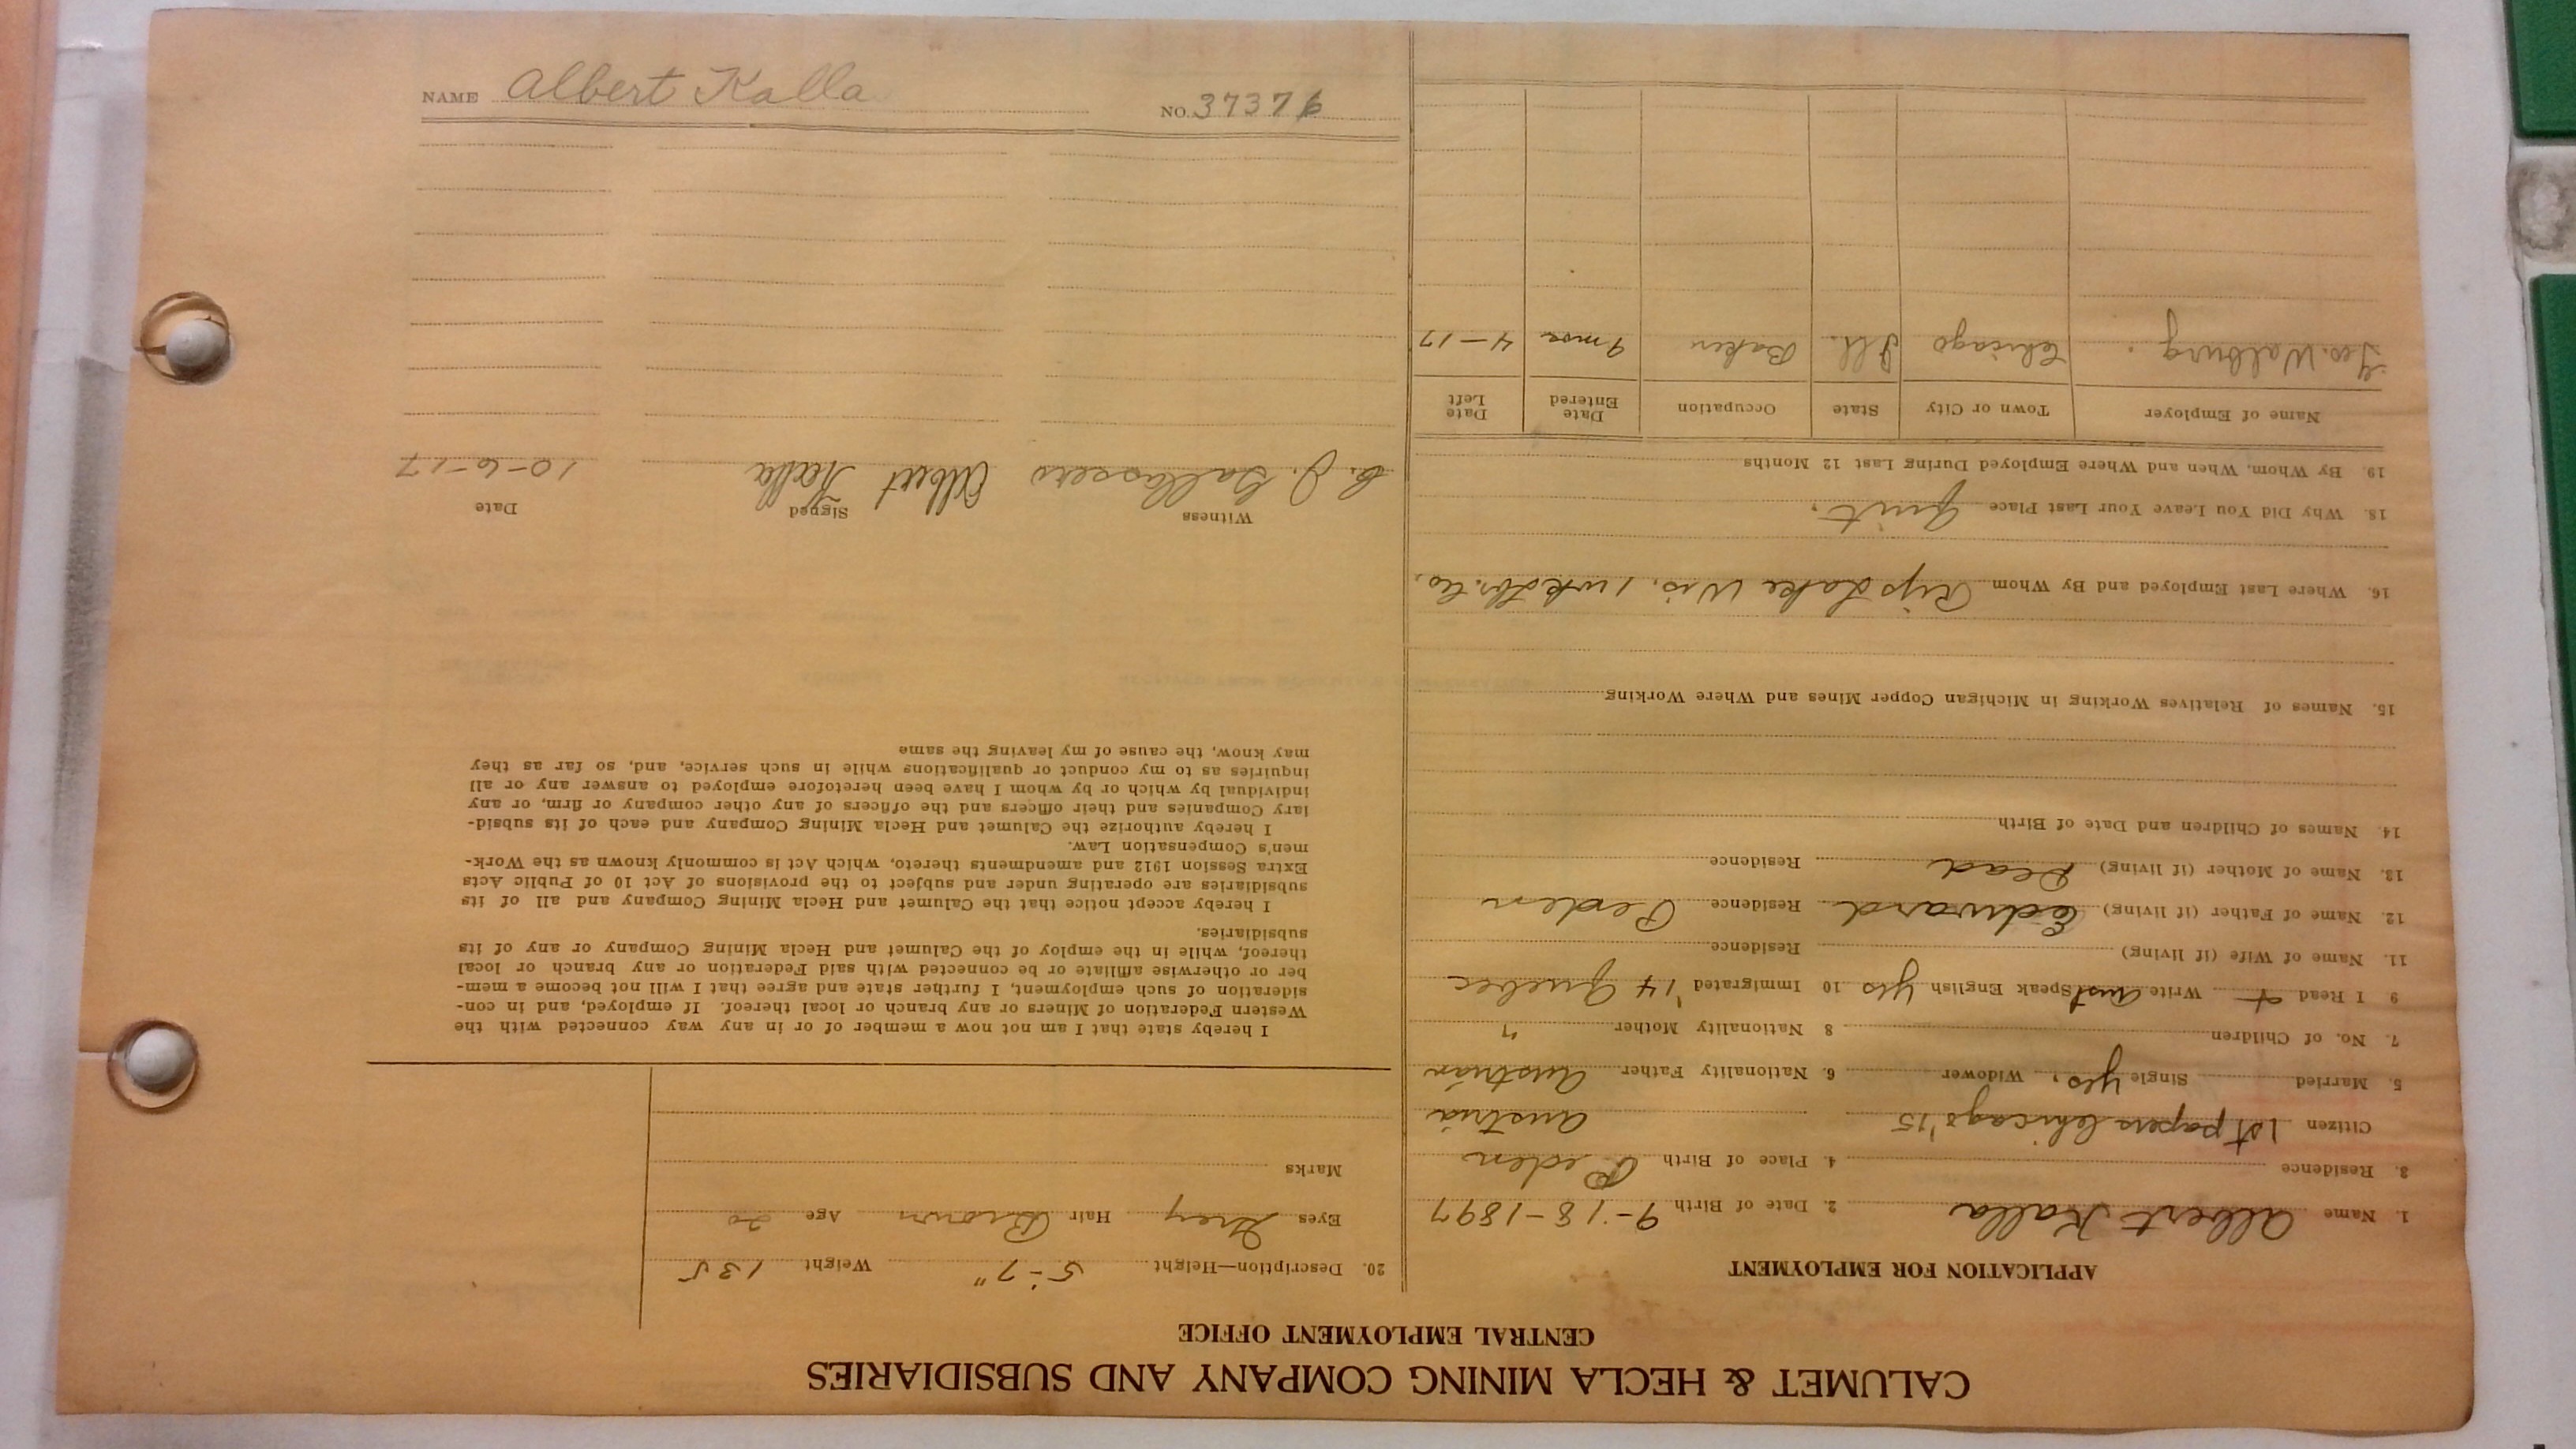 CALUMET & HECLA MINING COMPANY AND SUBSIDIARIES
CENTRAL EMPLOYMENT OFFICE
APPLICATION FOR EMPLOYMENT
1. Name Albert Kalla 2. Date of Birth 9-18-1897
3. Residence 4. Place of Birth Peden
Citizen 1st papers Chicago '15 Austria
5. Married Single yes, Widower 6. Nationality Father Austrian
7. No. of Children 8 Nationality Mother "
9 I Read + Write Aust Speak English yes 10 Immigrated '14 Quebec
11. Name of Wife (if living) Residence
12. Name of Father (if living) Edward Residence Peden
13. Name of Mother (if living) Dead Residence
14. Names of Children and Date of Birth
15. Names of Relatives Working in Michigan Copper Mines and Where Working
16. Where Last Employed and By Whom Rip Lake Wis. 1 wk Lbr. Co.
18. Why Did You Leave Your Last Place Quit.
19. By Whom, When and Where Employed During Last 12 Months
Name of Employer Town or City State Occupation Date Entered Date Left
Geo. Walburg. Chicago Ill. Baker 9 mos 4-17
20. Description—Height 5-7" Weight 135
Eyes Grey Hair Brown Age 20
Marks
I hereby state that I am not now a member of or in any way connected with the
Western Federation of Miners or any branch or local thereof. If employed, and in con-
sideration of such employment, I further state and agree that I will not become a mem-
ber or otherwise affiliate or be connected with said Federation or any branch or local
thereof, while in the employ of the Calumet and Hecla Mining Company or any of its
subsidiaries.
I hereby accept notice that the Calumet and Hecla Mining Company and all of its
subsidiaries are operating under and subject to the provisions of Act 10 of Public Acts
Extra Session 1912 and amendments thereto, which Act is commonly known as the Work-
men's Compensation Law.
I hereby authorize the Calumet and Hecla Mining Company and each of its subsid-
iary Companies and their officers and the officers of any other company or firm, or any
individual by which or by whom I have been heretofore employed to answer any or all
inquiries as to my conduct or qualifications while in such service, and, so far as they
may know, the cause of my leaving the same
Witness Signed Date
J. Albert Kalla 10-6-17
NAME Albert Kalla NO. 37376